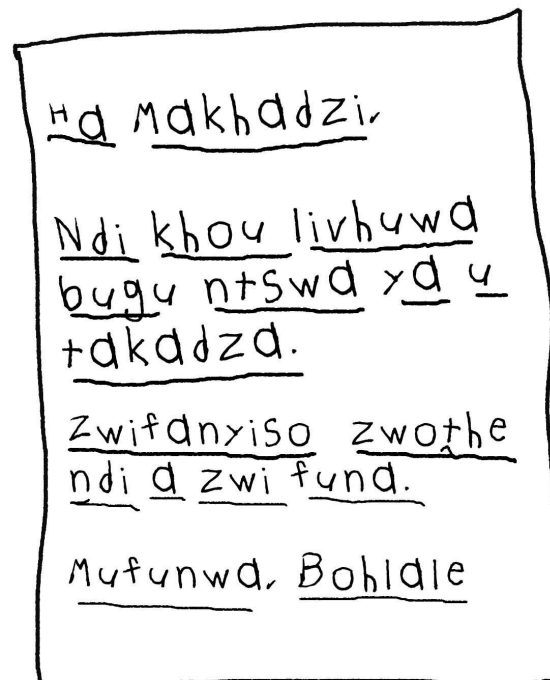 Ha Makhadzi,
Ndi khou livhuwa
bugu ntswa ya u
takadza.
Zwifanyiso zwoṱhe
ndi a zwi funa.
Mufunwa, Bohlale